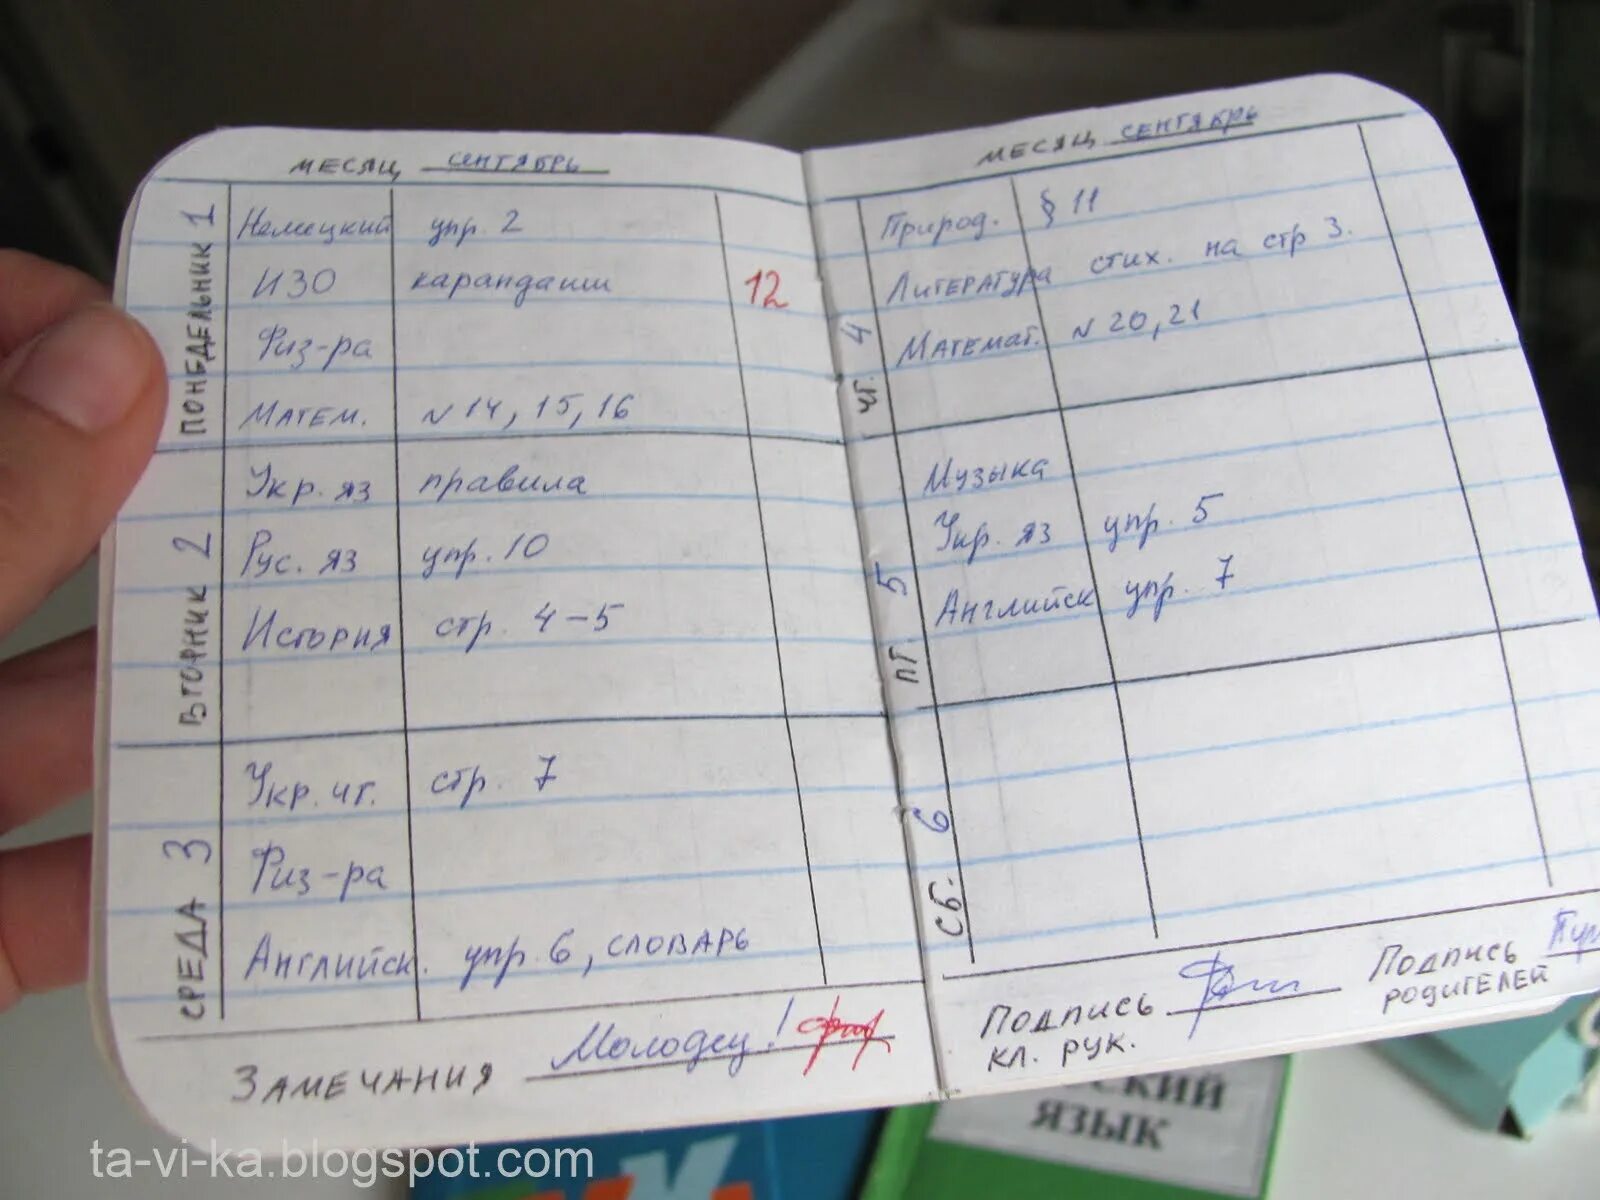 МЕСЯЦ СЕНТЯБРЬ
ПОНЕДЕЛЬНИК 1
Немецкий упр. 2
ИЗО карандаши 12
Физ-ра
Матем. N 14, 15, 16
ВТОРНИК 2
Укр. яз правила
Рус. яз упр. 10
История стр. 4-5
СРЕДА 3
Укр. чт. стр. 7
Физ-ра
Английск. упр. 6, словарь
ЗАМЕЧАНИЯ Молодец!
МЕСЯЦ СЕНТЯБРЬ
ЧТ. 4
Природ. § 11
Литература стих. на стр 3.
Математ. N 20, 21
ПТ. 5
Музыка
Укр. яз упр. 5
Английск упр. 7
СБ. 6
ПОДПИСЬ
КЛ. РУК.
ПОДПИСЬ
РОДИТЕЛЕЙ
ЯЗЫК
ta-vi-ka.blogspot.com